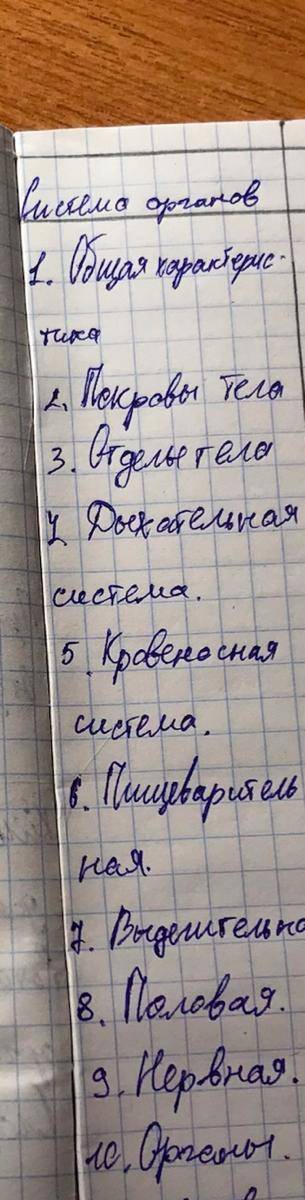 Система органов
1. Общая характерис-
тика
2. Покровы тела
3. Отделы тела
4. Дыхательная
система.
5. Кровеносная
система.
6. Пищеваритель
ная.
7. Выделительна
8. Половая.
9. Нервная.
10. Органы.